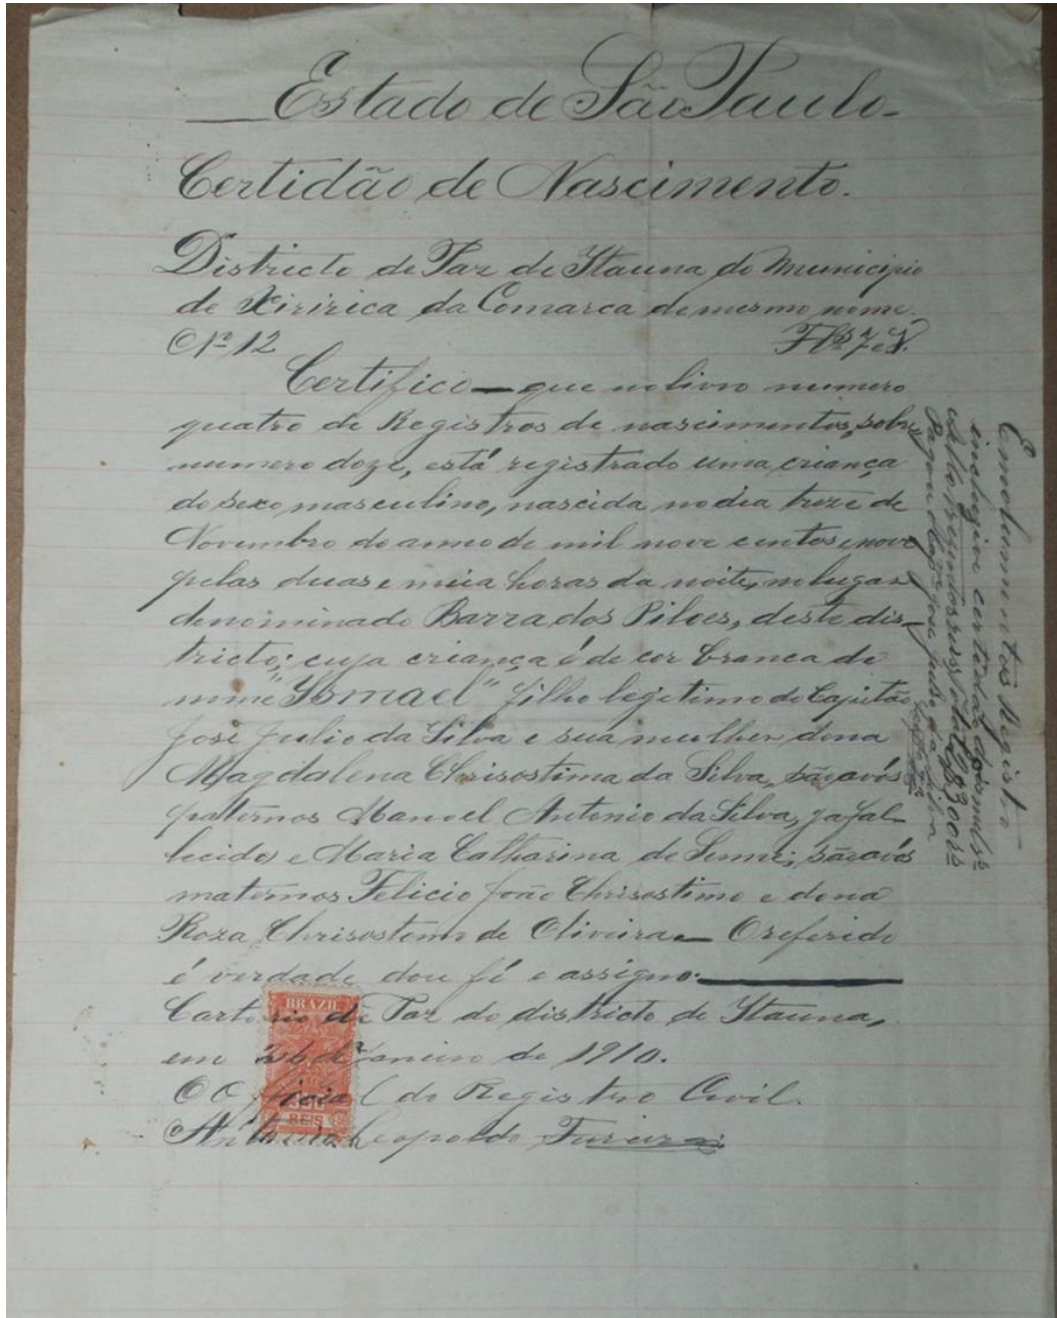 Estado de São Paulo-
Certidão de Nascimento.
Districto de Paz de Itauna do Municipio
de Xiririca da Comarca de mesmo nome.
Nº 12 Fls 7 e V.
Certifico — que no livro numero
quatro de Registros de nascimentos, sobre
numero doze, está registrado uma criança
do sexo masculino, nascida no dia treze de
Novembro do anno de mil nove centos e nove
pelas duas e meia horas da noite, no lugar
denominado Barra dos Pilões, deste dis-
tricto; cuja criança é de cor branca de
nome "Ismael" filho legitimo do Capitão
José Julio da Silva e sua mulher dona
Magdalena Chrisostima da Silva, são avós
paternos Manoel Antonio da Silva, ja fal-
lecido e Maria Catharina de ; são avós
maternos Felicio João Chrisostimo e dona
Roza Chrisostomo de Oliveira — O referido
é verdade dou fé e assigno.
Cartorio de Paz do districto de Itauna,
em 26 de Janeiro de 1910.
O Official do Registro Civil.
Antonio Leopoldo
BRAZIL
300
REIS
Emolumentos Registro
inclusive certidão dois mil rs
Sello
Pagou o Capm José Julio da Silva